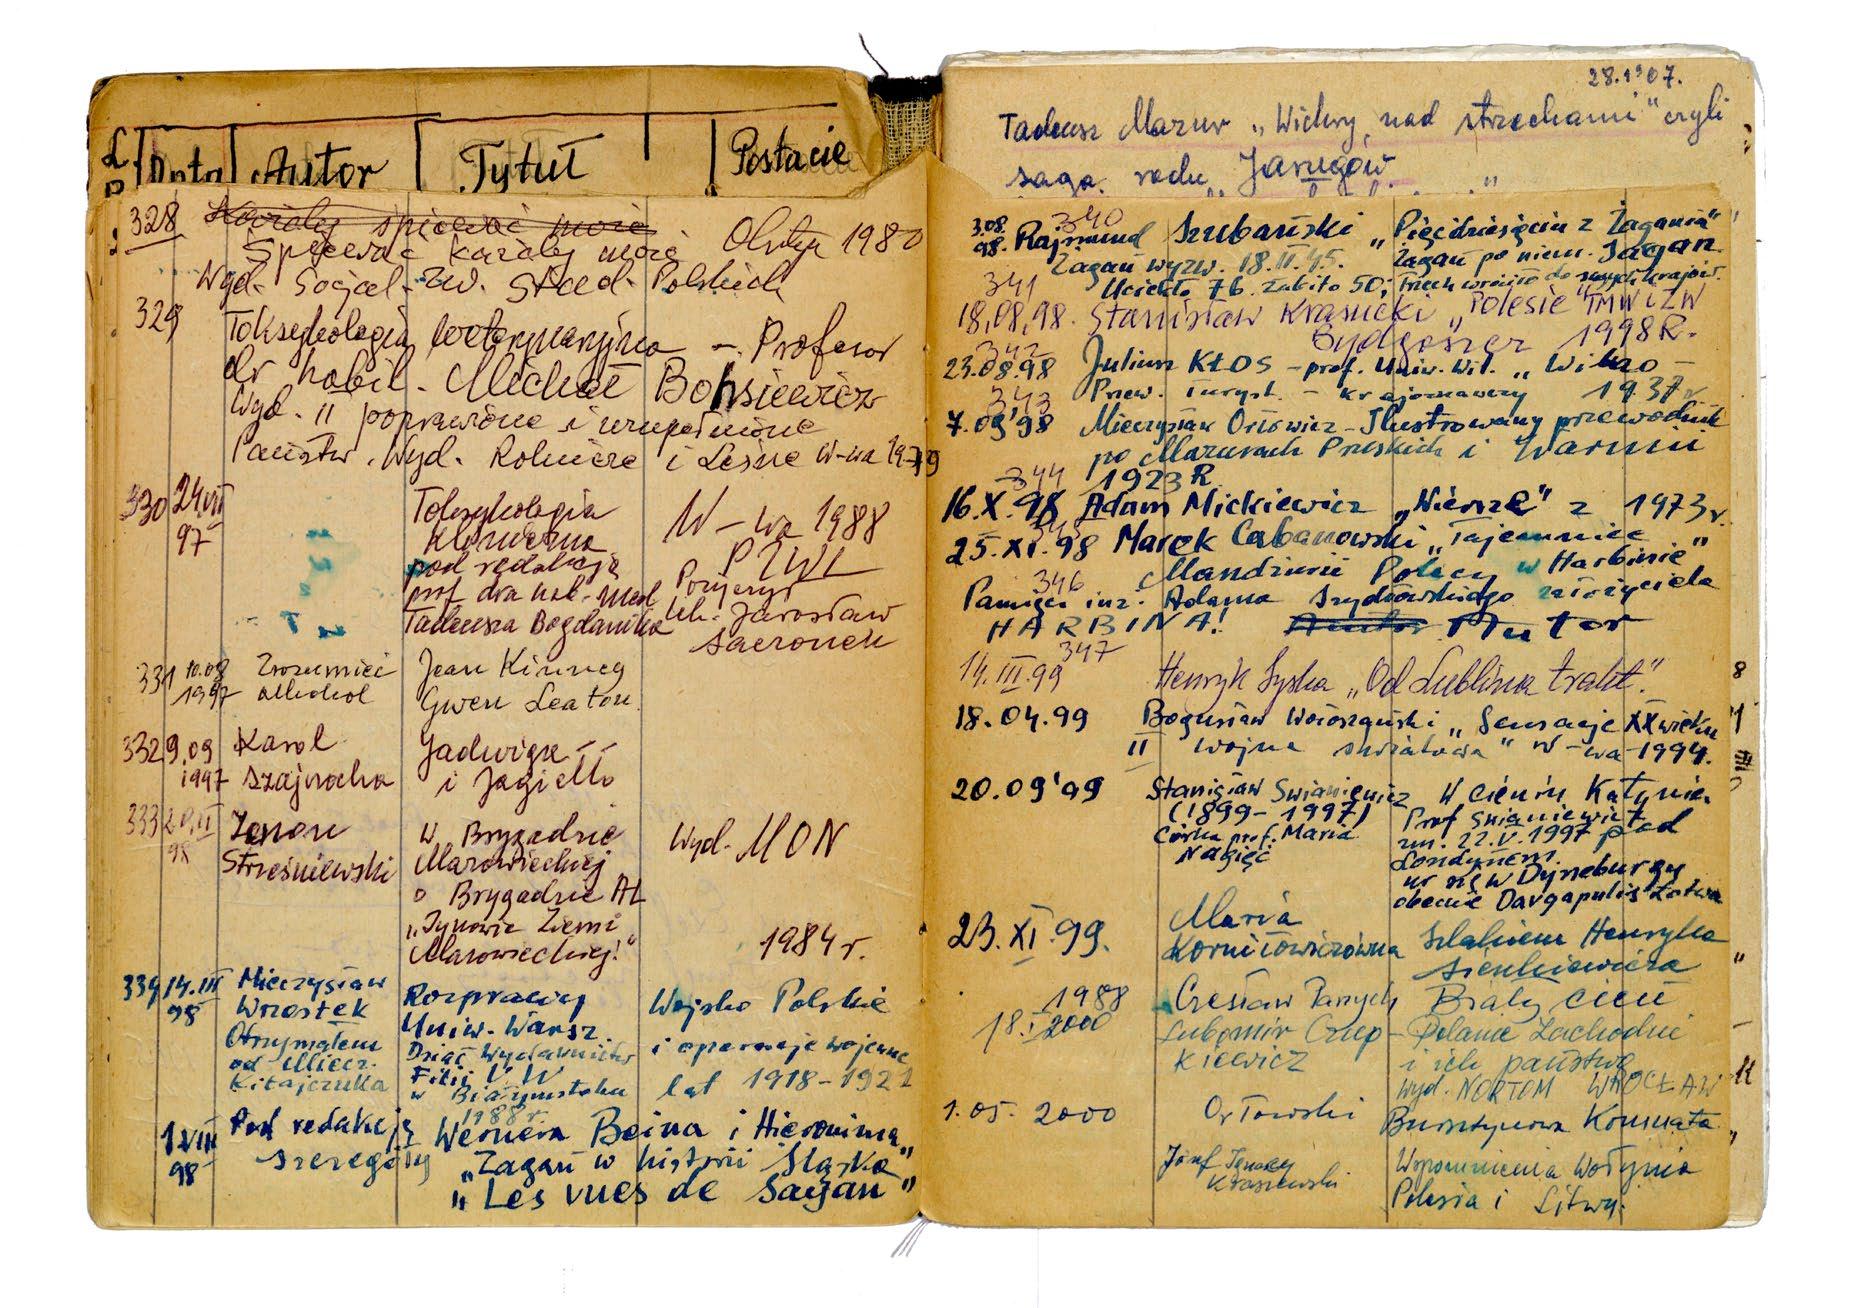 L.P. Data Autor Tytuł Postacie
328 Każdy śpiewać może
Śpiewać każdy może Olsztyn 1980
Wyd. Socjal. Zw. Stud. Polskich
329 Toksykologia weterynaryjna – Profesor
dr habil. Michał Bohsiewicz
Wyd. II poprawione i uzupełnione
Państw. Wyd. Rolnicze i Leśne W-wa 1979
330 24.VII 97 Toksykologia W-wa 1988
kliniczna PZWL
pod redakcją
prof. dra hab. med. Pożyczył
Tadeusza Bogdanika lek. Jarosław
Szeronek
331 10.08 1997 Zrozumieć Jean Kinney
alkohol Gwen Leaton
332 9.09 1997 Karol Jadwiga
Szajnocha i Jagiełło
333 20.II 98 Zenon W Brygadzie Wyd. MON
Strześniewski Mazowieckiej
o Brygadzie AL
„Synowie Ziemi
Mazowieckiej!" 1984 r.
334 14.III 98 Mieczysław Rozprawy Wojsko Polskie
Wrzostek Uniw. Warsz.
Otrzymałem Dział Wydawnictw i operacje wojenne
od Miecz. Filii U W lat 1918–1921
Kitajczuka w Białymstoku
1988 r.
12.VII 98 Pod redakcją Wernera Beina i Hieronima
Szczegóły „Żagań w historii Śląska"
„Les vues de Sagan"
28.1°07.
Tadeusz Mazur „Wichry nad strzechami" czyli
saga rodu Jarugów
340
3.08. 98. Rajmund Szubański „Pięćdziesięciu z Żagania"
Żagań wyzw. 18.II.45. Żagań po niem. Sagan
Uciekło 76. zabito 50; Trzech wróciło do swych krajów.
341
18.08.98. Stanisław Krasucki „Polesie" TMWiZW
Bydgoszcz 1998 R.
342
23.08.98 Juliusz KŁOS – prof. Uniw. Wil. „Wilno –
Przew. turyst. – krajoznawczy 1937 r.
343
7.09'98 Mieczysław Orłowicz – Ilustrowany przewodnik
po Mazurach Pruskich i Warmii
344 1923 R
16.X.98 Adam Mickiewicz „Wiersze" z 1973 r.
345
25.XI.98 Marek Cabanowski „Tajemnice
Mandżurii Polacy w Harbinie"
346
Pamięci inż. Adama Szydłowskiego założyciela
HARBINA! Autor Autor
347
14.III.99 Henryk Syska „Od Lublina trakt".
18.04.99 Bogusław Wołoszański „Sensacje XX wieku
II wojna światowa" W-wa 1994.
20.09'99 Stanisław Swianiewicz W cieniu Katynia.
(1899–1997) Prof. Swianiewicz
Córka prof. Maria zm. 22.V.1997 pod
Nagięć Londynem.
ur się w Dyneburgu
obecnie Davgapulis Łotwa
23.XI.99. Maria
Korniłowiczówna Szlakiem Henryka
Sienkiewicza
1988 Czesław Parzych Biały cień
18.I.2000 Lubomir Czup- Polanie Zachodni
kiewicz i ich państwo
wyd. NORTOM WROCŁAW
1.05. 2000 Orłowski Bursztynowa Komnata
Józef Ignacy Wspomnienia Wołynia
Kraszewski Polesia i Litwy.